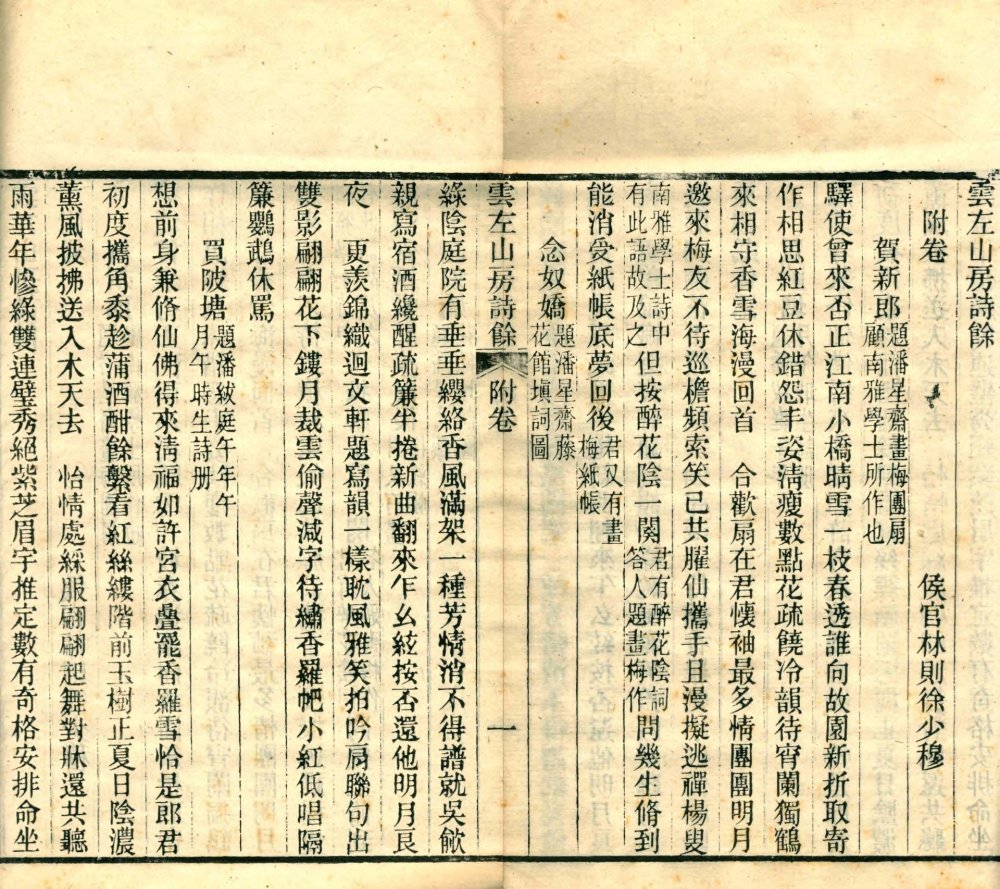 雲左山房詩餘
附卷　侯官林則徐少穆
賀新郎題潘星齋畫梅團扇顧南雅學士所作也
驛使曾來否正江南小橋晴雪一枝春透誰向故園新折取寄
作相思紅豆休錯怨丰姿淸瘦數點花疏饒冷韻待宵闌獨鶴
來相守香雪海漫回首　合歡扇在君懷袖最多情團團明月
邀來梅友不待巡檐頻索笑已共臞仙攜手且漫擬逃禪楊叟
南雅學士詩中有此語故及之但按醉花陰一闋君有醉花陰詞答人題畫梅作問幾生脩到
能消受紙帳底夢回後君又有畫梅紙帳
念奴嬌題潘星齋藤花館塡詞圖
綠陰庭院有垂垂纓絡香風滿架一種芳情消不得譜就吳歈
親寫宿酒纔醒疏簾半捲新曲翻來乍幺絃按否還他明月良
夜　更羨錦織迴文軒題寫韻一樣耽風雅笑拍吟肩聯句出
雙影翩翩花下鏤月裁雲偷聲減字待繡香羅帊小紅低唱隔
簾鸚鵡休罵
買陂塘題潘紱庭午年午月午時生詩册
想前身兼脩仙佛得來淸福如許宮衣疊罷香羅雪恰是郎君
初度攜角黍趁蒲酒酣餘繫看紅絲縷階前玉樹正夏日陰濃
薰風披拂送入木天去　怡情處綵服翩翩起舞對牀還共聽
雨華年慘綠雙連璧秀絕紫芝眉宇推定數有奇格安排命坐
雲左山房詩餘　附卷　一